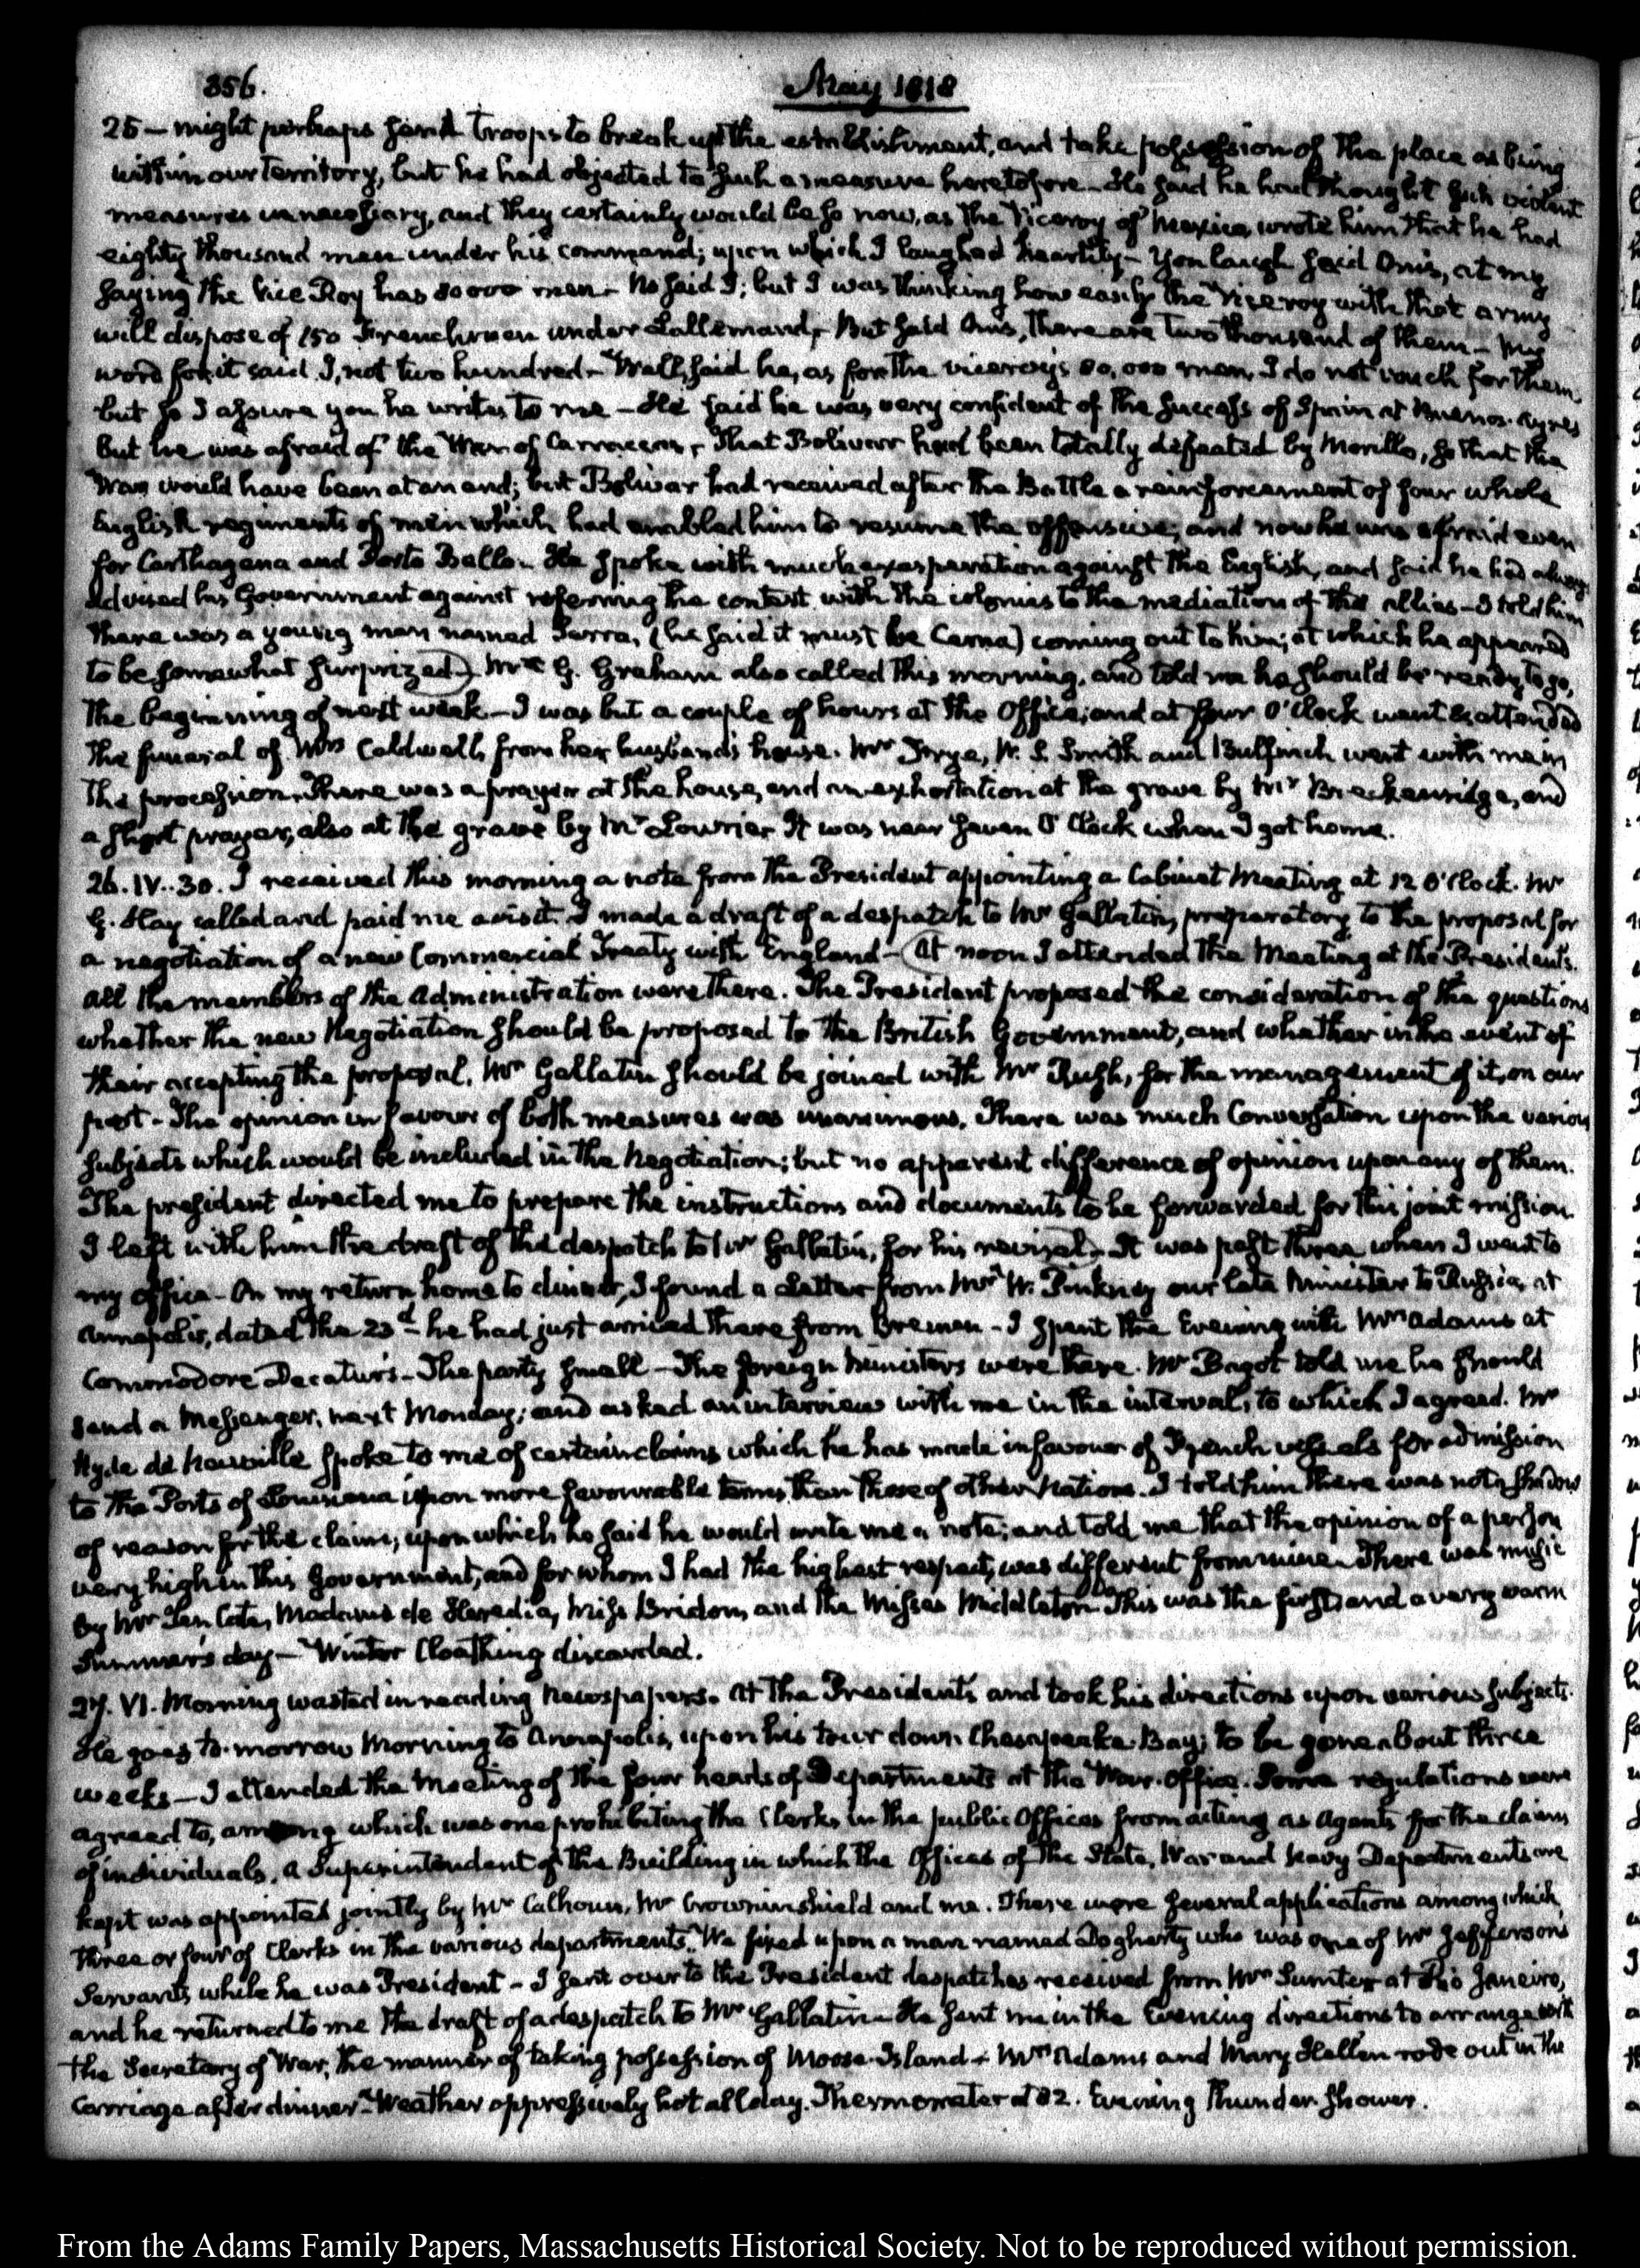 356.
May 1818
25 — might perhaps send troops to break up the establishment, and take possession of the place as being
within our Territory, but he had objected to such a measure heretofore — He said he had thought such violent
measures unnecessary, and they certainly would be so now, as the Viceroy of Mexico, wrote him that he had
eighty thousand men under his command; upon which I laughed heartily — You laugh said Onis, at my
saying the Vice Roy has 80 000 men — No said I; but I was thinking how easily the Viceroy with that army
will dispose of 150 Frenchmen under Lallemand, — But said Onis, there are two thousand of them — My
word for it said I, not two hundred — Well, said he, as for the viceroy's 80,000 men, I do not vouch for them,
but so I assure you he writes to me — He said he was very confident of the success of Spain at Buenos-ayres
but he was afraid of the War of Carraccas, — That Bolivar had been totally defeated by Morillo, so that the
War would have been at an end; but Bolivar had received after the Battle a reinforcement of four whole
English regiments of men which had enabled him to resume the offensive; and now he was afraid even
for Carthagena and Porto Bello — He spoke with much exasperation against the English, and said he had always
advised his Government against referring the contest with the colonies to the mediation of the allies — I told him
there was a young man named Serra, (he said it must be Cerna) coming out to him; at which he appeared
to be somewhat surprized — Mr G. Graham also called this morning, and told me he should be ready to go,
the beginning of next week — I was but a couple of hours at the Office; and at four O'Clock went & attended
the funeral of Mrs Caldwell, from her husband's house. Mr Frye, W. S. Smith and Bulfinch went with me in
the procession. There was a prayer at the house, and an exhortation at the grave by Mr Breckenridge, and
a short prayer, also at the grave by Mr Lowrie. It was near seven O'Clock when I got home.
26. IV..30. I received this morning a note from the President appointing a Cabinet Meeting at 12 O'Clock. Mr
G. Hay called and paid me a visit. I made a draft of a despatch to Mr Gallatin, preparatory to the proposal for
a negotiation of a new Commercial Treaty with England — At noon I attended the Meeting at the President's.
All the members of the Administration were there. The President proposed the consideration of the questions
whether the new Negotiation should be proposed to the British Government, and whether in the event of
their accepting the proposal, Mr Gallatin should be joined with Mr Rush, for the management of it, on our
part — The opinion in favour of both measures was unanimous. There was much Conversation upon the various
subjects which would be included in the Negotiation; but no apparent difference of opinion upon any of them.
The president directed me to prepare the instructions and documents to be forwarded for this joint mission.
I left with him the draft of the despatch to Mr Gallatin, for his revisal. — It was past three when I went to
my office — On my return home to dinner, I found a Letter from Mr W. Pinkney our late Minister to Russia, at
Annapolis, dated the 23d — he had just arrived there from Bremen — I spent the Evening with Mrs Adams at
Commodore Decatur's — The party small — The foreign Ministers were there. Mr Bagot told me he should
send a Messenger, next Monday; and asked an interview with me in the interval, to which I agreed. Mr
Hyde de Neuville spoke to me of certain claims which he has made in favour of French vessels for admission
to the Ports of Louisiana upon more favourable terms than those of other Nations. I told him there was not a shadow
of reason for the claim, upon which he said he would write me a note; and told me that the opinion of a person
very high in this Government, and for whom I had the highest respect, was different from mine. There was music
by Mr Ten Cate, Madame de Heredia, Miss Bridon, and the Misses Middleton. This was the first, and a very warm
Summer's day — Winter Cloathing discarded.
27. VI. Morning wasted in reading Newspapers. At the President's and took his directions upon various subjects.
He goes to-morrow Morning to Annapolis, upon his tour down Chesapeake Bay; to be gone about three
weeks — I attended the Meeting of the four heads of Departments at the War-Office. Some regulations were
agreed to, among which was one prohibiting the Clerks in the public Offices from acting as Agents for the claims
of individuals. A Superintendent of the Building in which the Offices of the State, War and Navy Departments are
kept was appointed jointly by Mr Calhoun, Mr Crowninshield and me. There were several applications among which
three or four of Clerks in the various departments. We fixed upon a man named Dogherty who was one of Mr Jefferson's
Servants while he was President — I sent over to the President despatches received from Mr Sumter at Rio Janeiro,
and he returned to me the draft of a despatch to Mr Gallatin — He sent me in the Evening directions to arrange with
the Secretary of War, the manner of taking possession of Moose-Island — Mrs Adams and Mary Hellen rode out in the
Carriage after dinner — Weather oppressively hot all day. Thermometer at 82. Evening Thunder-shower.
From the Adams Family Papers, Massachusetts Historical Society. Not to be reproduced without permission.